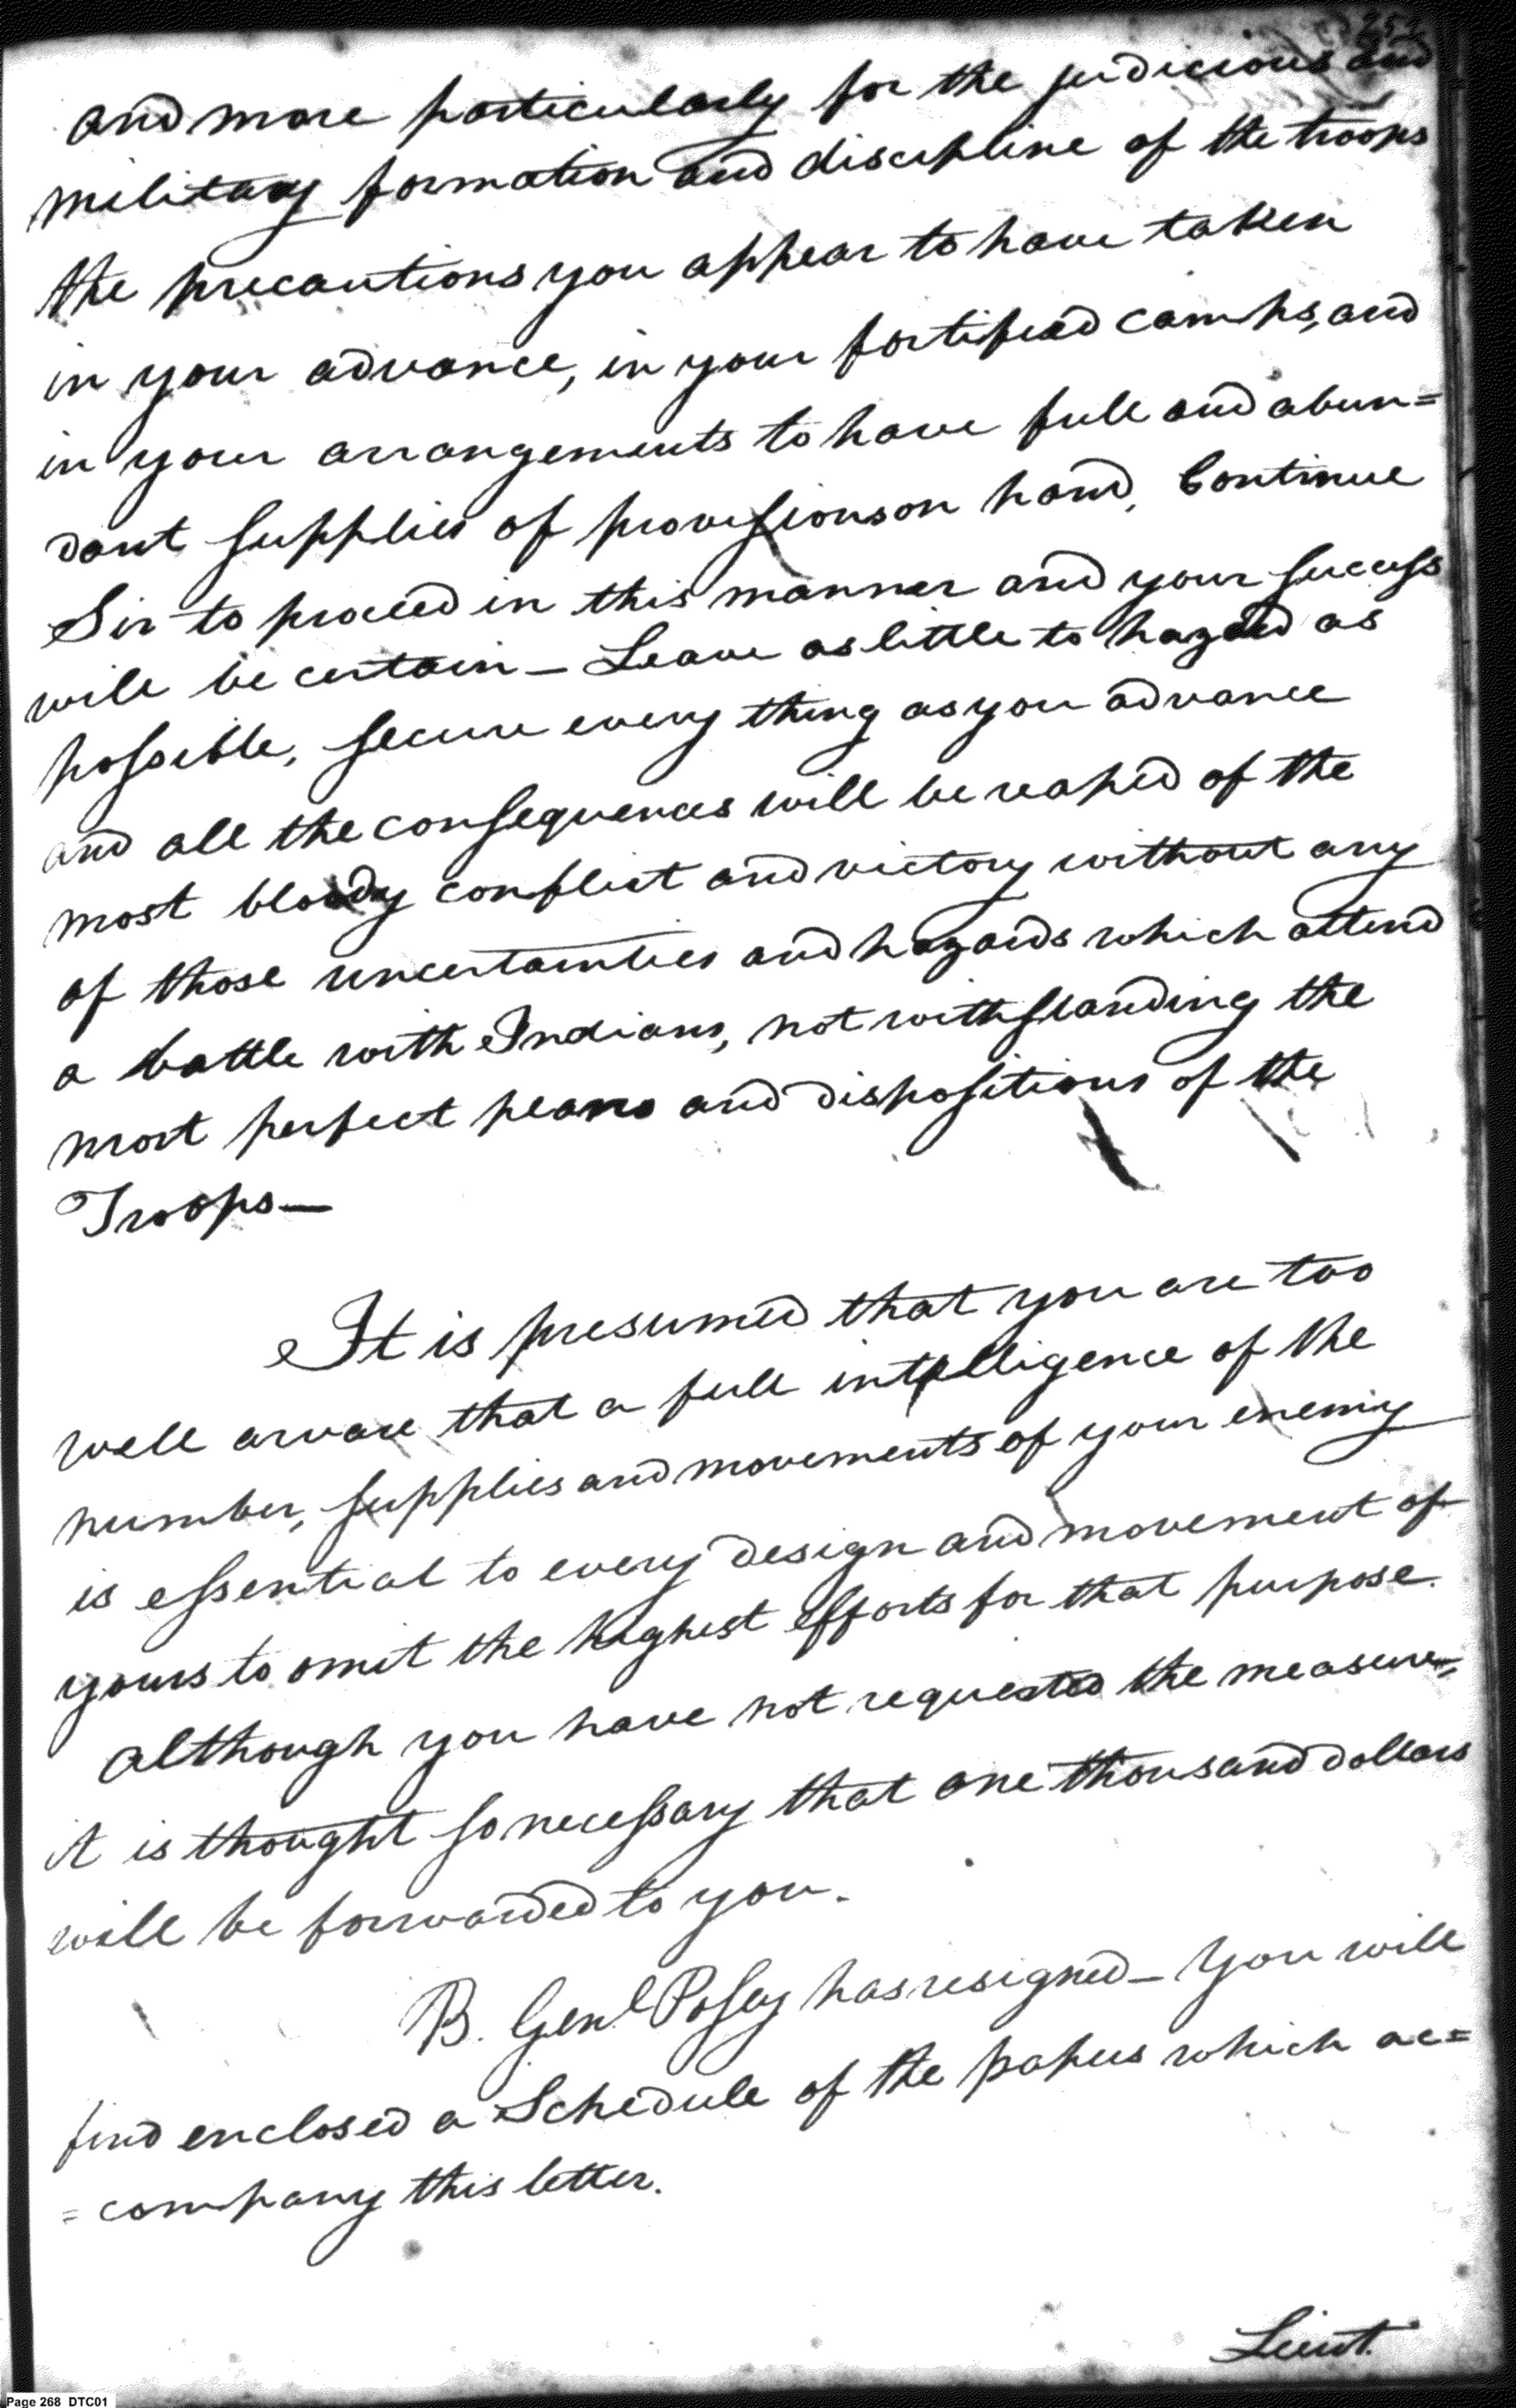 252
and more particularly for the judicious and
military formation and discipline of the troops
the precautions you appear to have taken
in your advance, in your fortified camps, and
in your arrangements to have full and abun=
dant supplies of provisions on hand, Continue
Sir to proceed in this manner and your success
will be certain — Leave as little to hazard as
possible, secure every thing as you advance
and all the consequences will be reaped of the
most bloody conflict and victory without any
of those uncertainties and hazards which attend
a battle with Indians, not withstanding the
most perfect plans and dispositions of the
Troops —
It is presumed that you are too
well aware that a full intelligence of the
number, supplies and movements of your enemy
is essential to every design and movement of
yours to omit the highest efforts for that purpose.
although you have not requested the measure,
it is thought so necessary that one thousand dollars
will be forwarded to you.
B. Genl Posey has resigned — You will
find enclosed a Schedule of the papers which ac=
=company this letter.
Lieut.
Page 268 DTC01